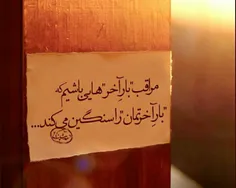 مراقب "بارِ آخر"هایی باشیم که
"بارِ آخرتمان" را سنگین می‌کند...